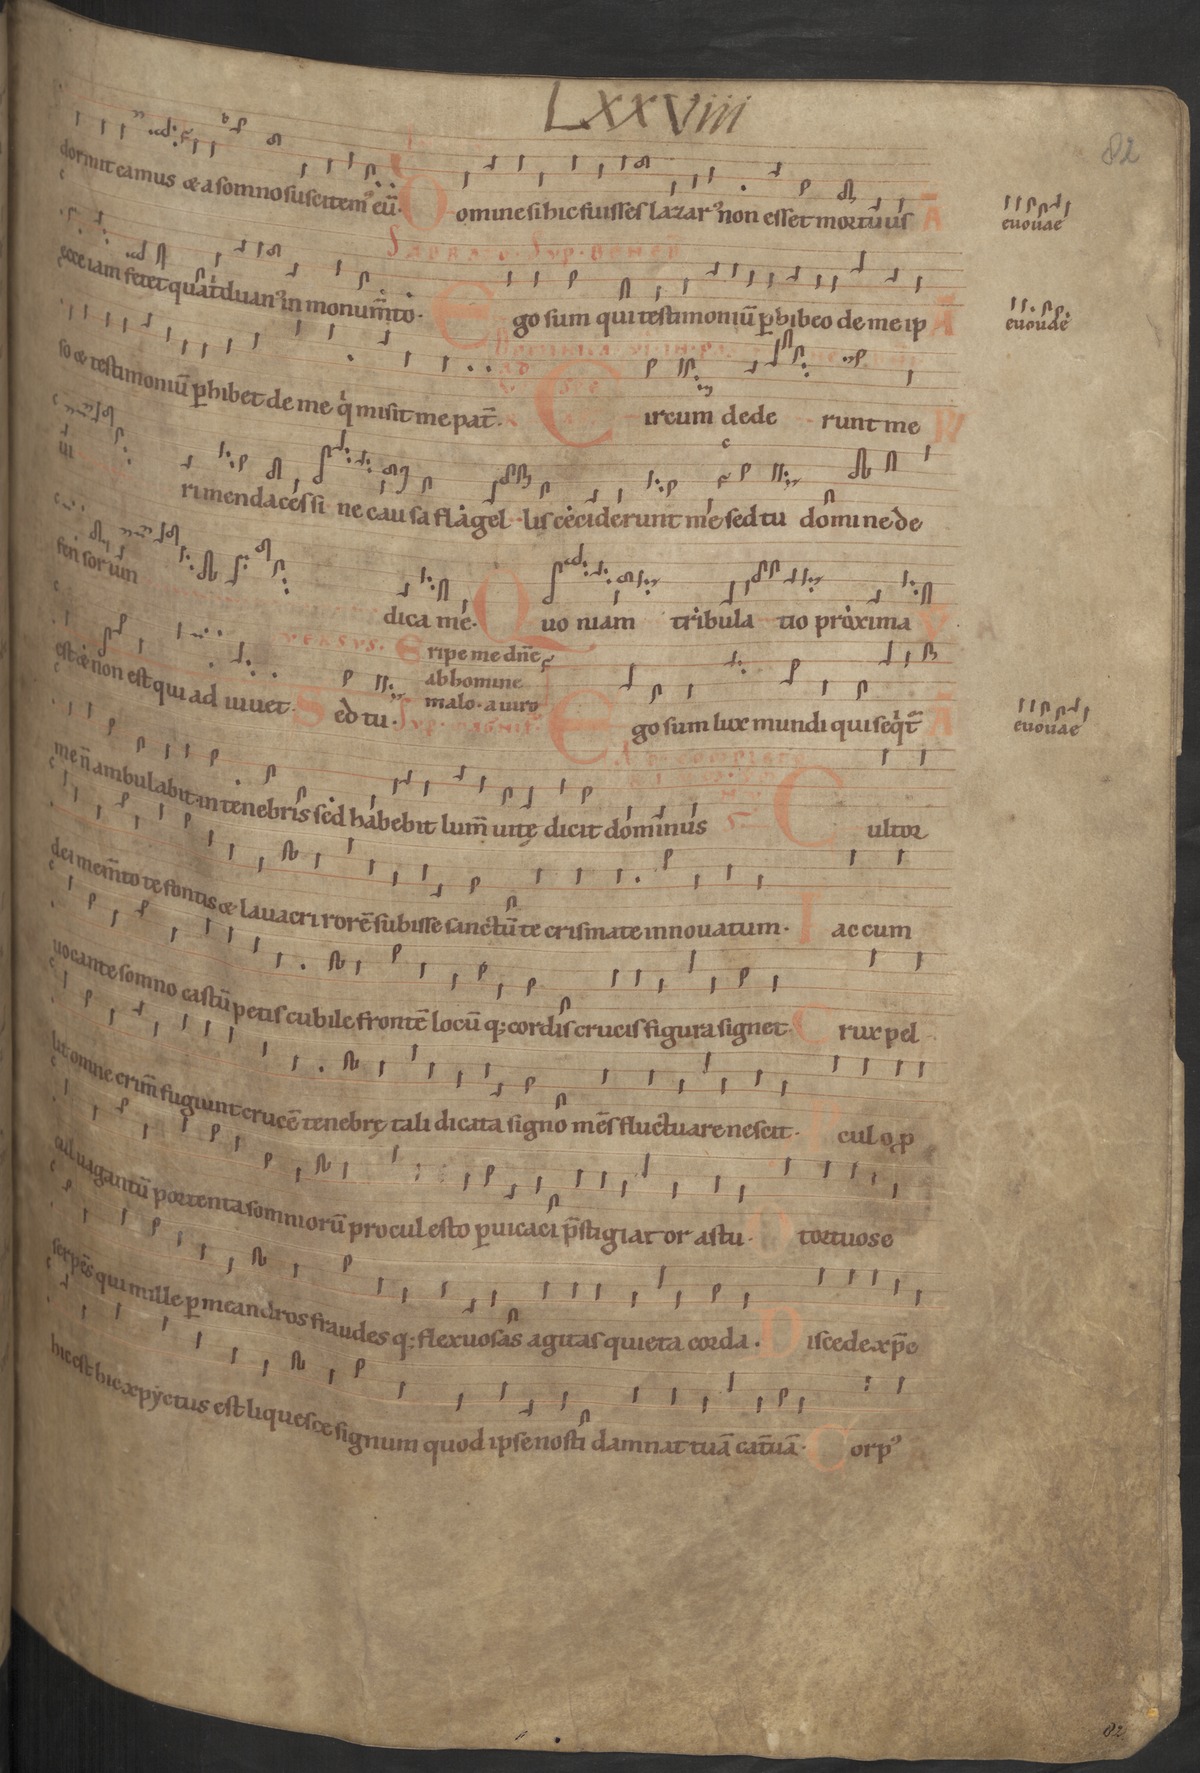 LXXVIII
82
dormit eamus & a somno suscitem᷒ eū. Domine si hic fuisses lazar᷒ non esset mortuus A
euouae
Sabbato. Sup. Bened
ecce iam fetet quatriduan᷒ in monum̄to. Ego sum qui testimoniū ꝑhibeo de me ip A
euouae
so & testimoniū ꝑhibet de me q̇ misit me pat̄. Circum dede runt me R
ui
ri mendaces si ne causa flagel lis ceciderunt me sed tu domine de
fen sor um
dica me. Quo niam tribula tio proxima V
Versus. Eripe me dn̄e
est & non est qui ad iuuet. Sed tu. ab homine
malo. a uiro
Sup. Magnif.
Ego sum lux mundi qui seq̇t̄ A
euouae
Ad completo
me n̄ ambulabit in tenebris sed habebit lum̄ uitę dicit dominus Cultor
dei mem̄to te fontis & lauacri rorē subisse sanctū te crismate innouatum. Fac cum
uocante somno castū petis cubile frontē locū q; cordis crucis figura signet. Crux pel
lit omne crim̄ fugiunt crucē tenebrę tali dicata signo mēs fluctuare nescit. culo ꝓ
cul uagantū portenta somniorū procul esto ꝑuicaci p̄stigiator astu. O tortuose
serpēs qui mille ꝑ meandros fraudes q; flexuosas agitas quieta corda. Discede xp̄e
hic est hic xpyctus est liquesce signum quod ipse nosti damnat tuā cat̄uā. Corp᷒
82